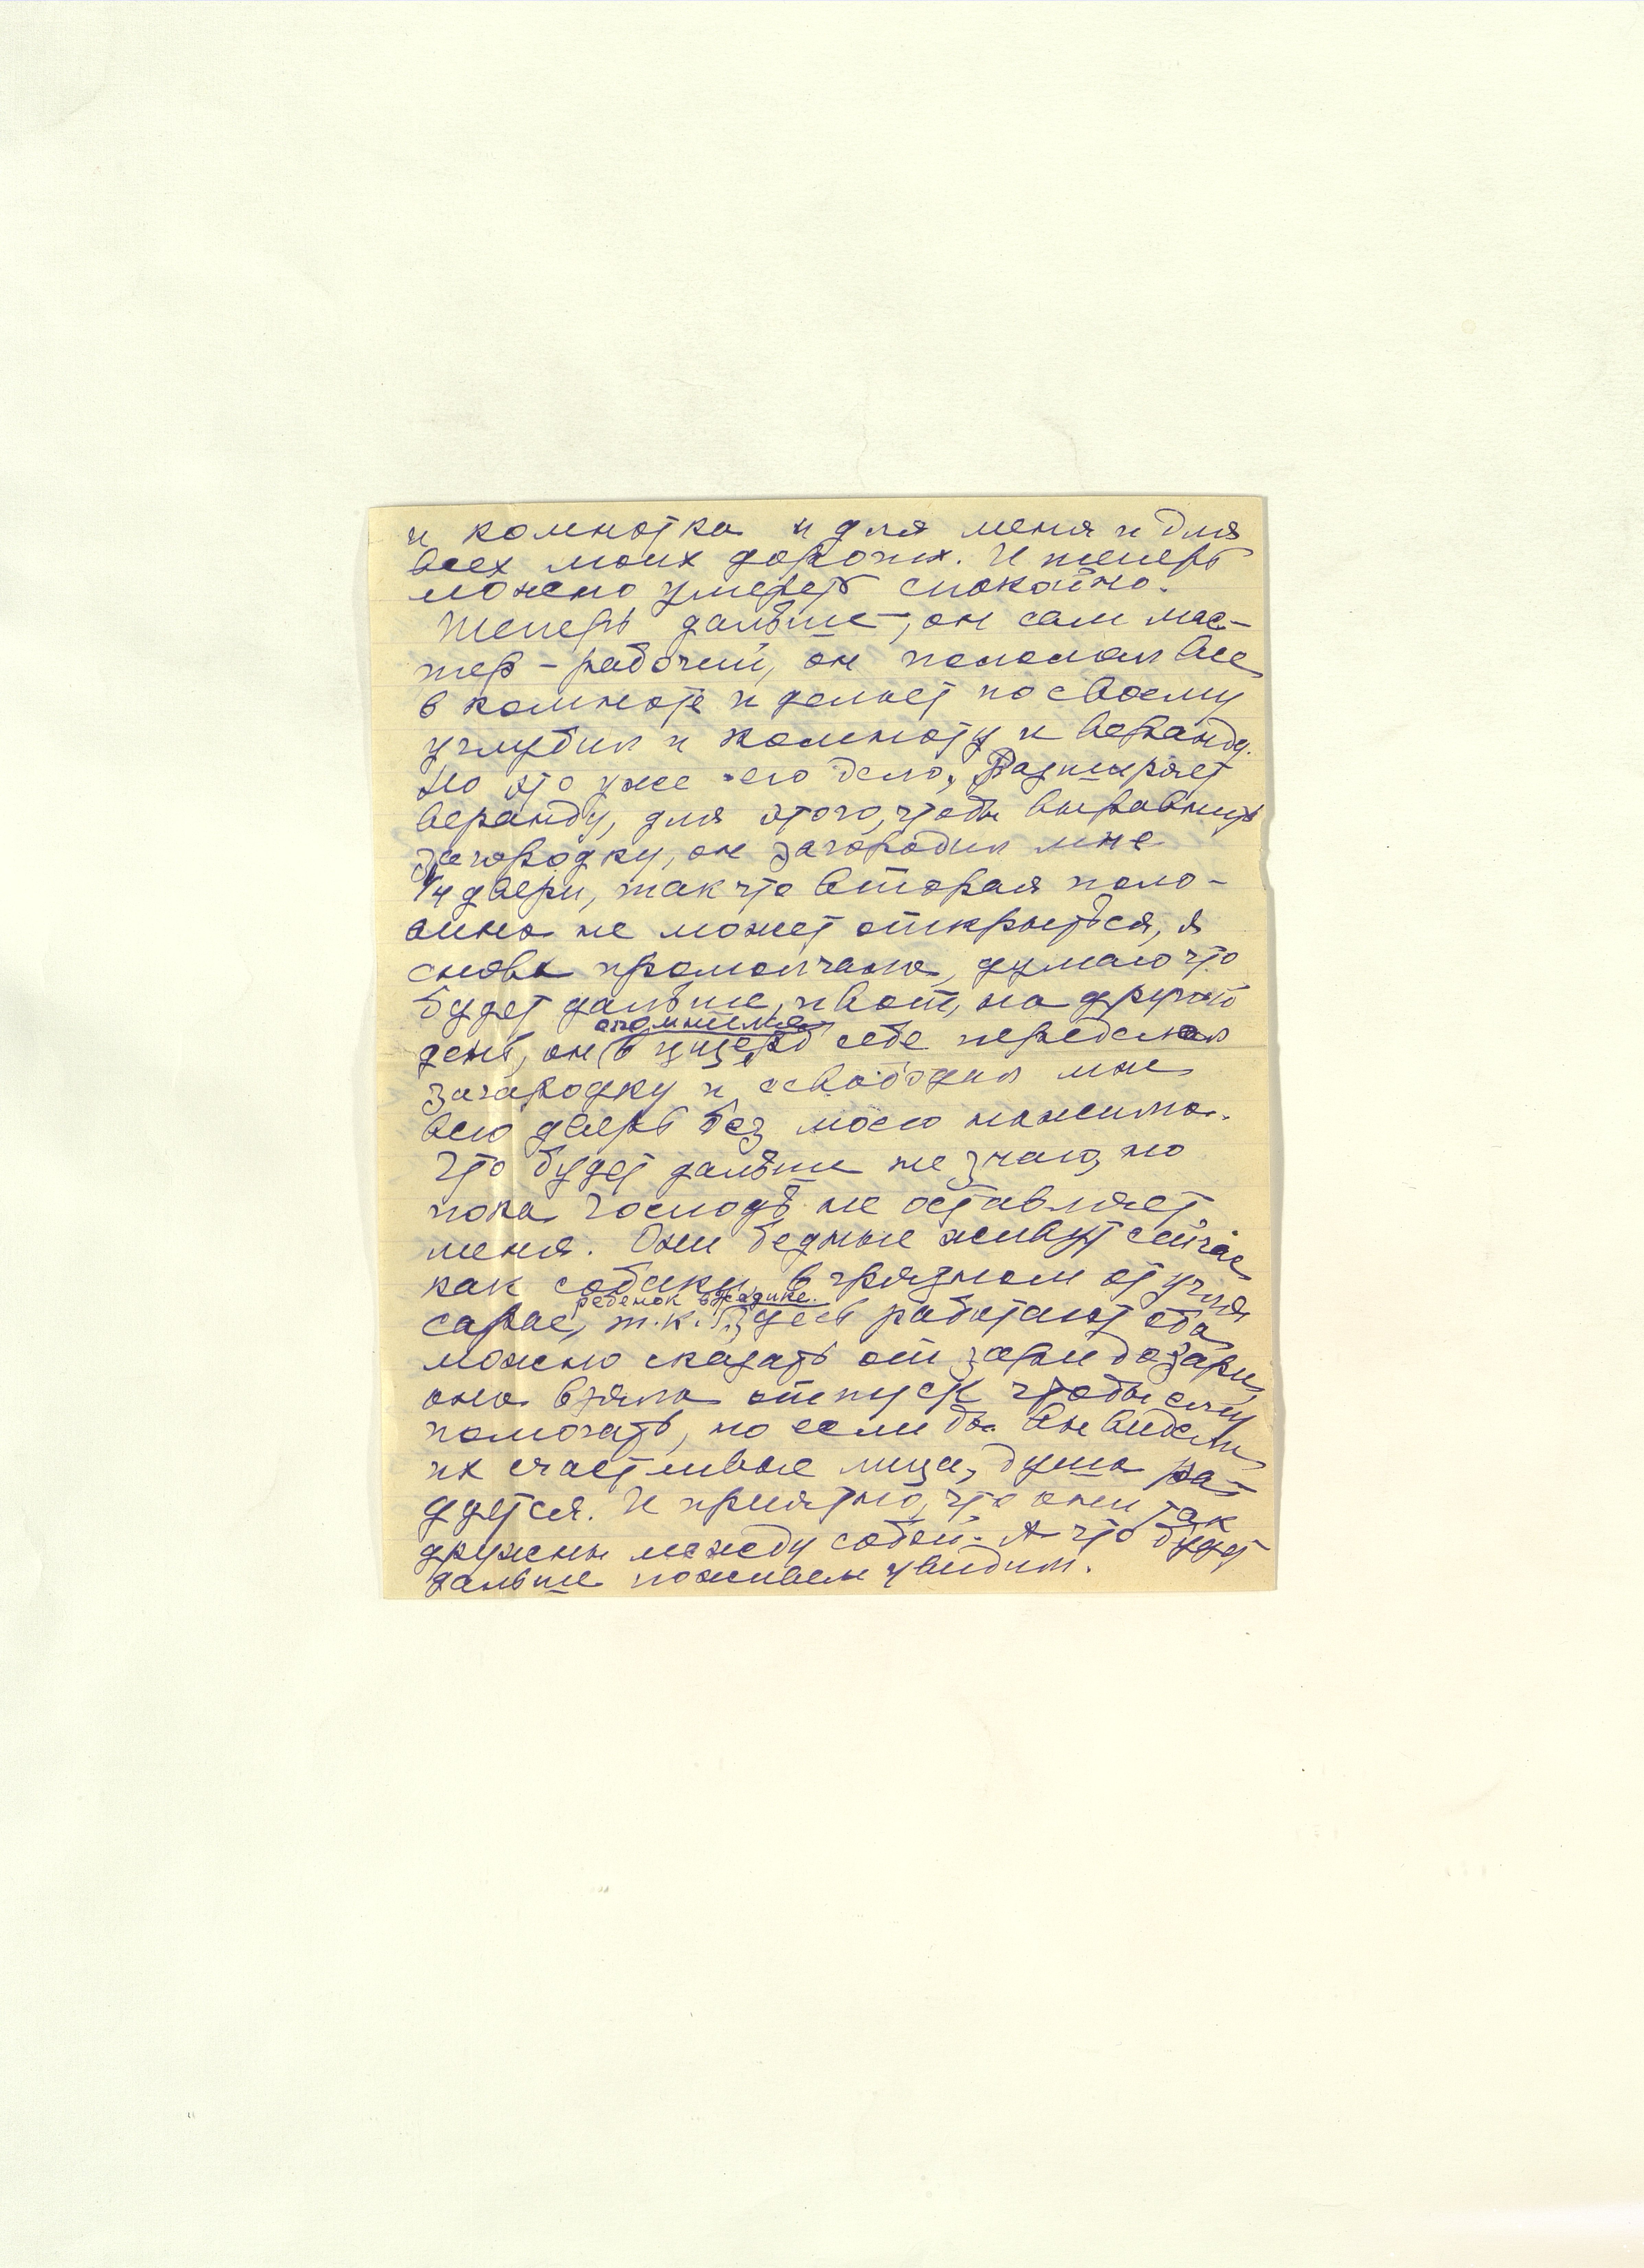 и комнатка и для меня и для
всех моих дорогих. И теперь
можно умереть спокойно.
Теперь дальше, он сам мас-
тер – рабочий, он поломал все
в комнате и делает по своему
углубил и комнату и веранду.
Но это уже его дело. Расширяет
веранду, для этого, чтобы выравнить
загородку, он загородил мне
1/4 двери, так что вторая поло-
вина не может открыться, я
снова промолчала, думаю что
будет дальше, и вот, на другой
опомнился
день, он в ущерб себе переделал
загородку и освободил мне
всю дверь без моего нажима.
Что будет дальше не знаю, но
пока Господь не оставляет
меня. Они бедные живут сейчас
как собаки, в грязном от угля
ребенок в садике.
сарае, т.к. здесь работают оба
можно сказать от зари до зари,
она взяла отпуск чтобы ему
помогать, но если бы Вы видели
их счастливые лица, душа ра-
дуется. И приятно, что они так
дружны между собой. А что будет
дальше поживем увидим.